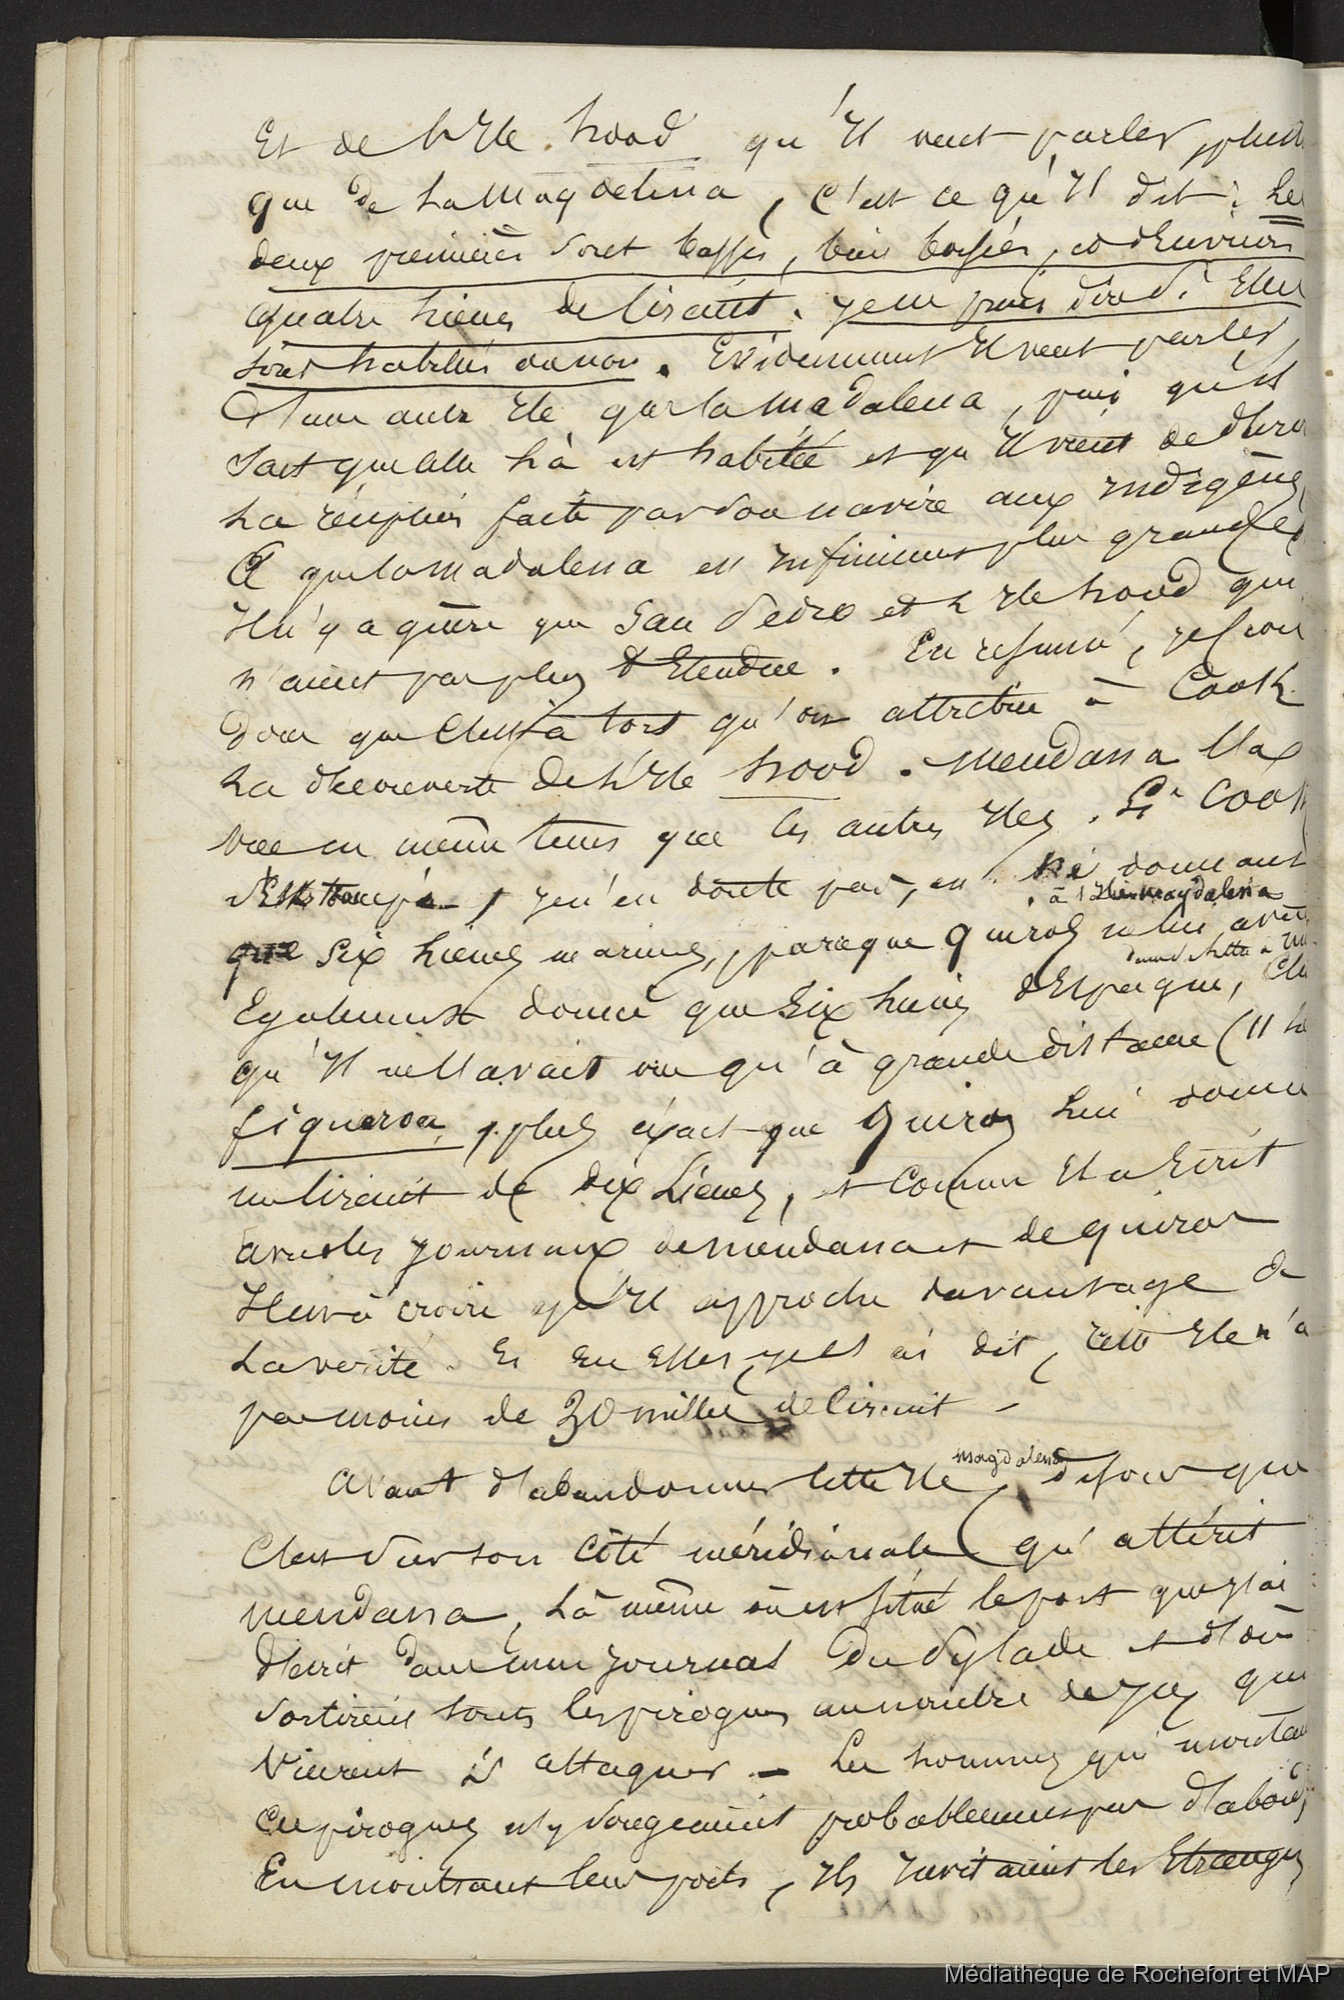 Et de l'Ile hood qu'Il veut parler, plutot
que de La Magdelena, C'est ce qu'Il dit: Les
deux premières sont basses, bien boisées, ont environ
quatre Lieues de Circuit. je ne puis dire si Elles
sont habitées ou non. Evidemment Il veut parler
d'une autre Ile que la Madalena, puis qu'il
sait que Celle Là est habitée et qu'Il vient de
La réception faite par son navire aux Indigènes
Et que la Madalena est Infiniment plus grande
Il n'y a guère que San Pedro et L'Ile hood qui
n'aient pas plus d'Etendue. En résumé, je crois
donc que C'est à tort qu'on attribue à Cook
La découverte de L'Ile hood. Mendana l'a
vue en même tems que les autres Iles. Si Cook
s'Est trompé, je n'en doute pas, en ne donnant
à l'Ile Magdalena
que six Lieues marines, parceque quiros ne lui avait
Egalement donné que six Lieues d'Espagne,
qu'Il ne l'avait vue qu'à grande distance (11
figueroa, plus éxact que quiros lui donne
un Circuit de dix Lieues, et Comme Il a Ecrit
avec les journaux de Mendana et de quiros
Il est à croire qu'Il approche davantage de
La verité. Et En Effet, je l'ai dit, cette Ile n'a
pas moins de 30 milles de Circuit -
Avant d'abandonner Cette Ile Magdalena, disons que
C'est sur son Côté méridionale qu'attérit
Mendana, Là même où est situé le port que j'ai
décrit dans mon journal du Pylade et d'où
sortirent toutes les pirogues au nombre de 70 qui
Vinrent l'attaquer - Les hommes qui montaient
Ces pirogues n'y songeaient probablement pas d'abord,
En montrant leur port, Ils Invitaient les Etrangers
Médiathèque de Rochefort et MAP